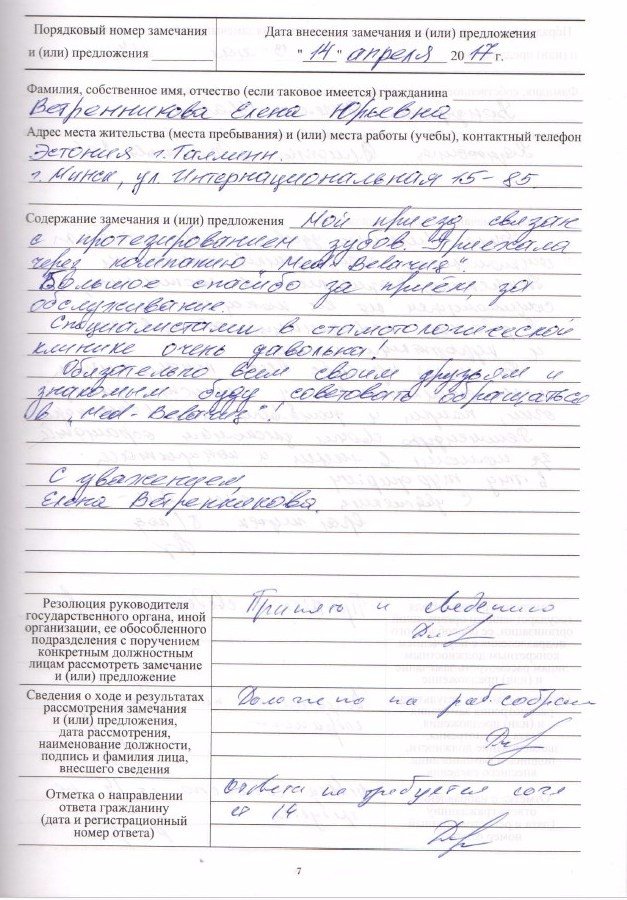 Порядковый номер замечания
и (или) предложения
Дата внесения замечания и (или) предложения
"14" апреля 2017 г.
Фамилия, собственное имя, отчество (если таковое имеется) гражданина
Ветренникова Елена Юрьевна
Адрес места жительства (места пребывания) и (или) места работы (учебы), контактный телефон
Эстония г. Таллинн.
г. Минск, ул. Интернациональная 15-85.
Содержание замечания и (или) предложения Мой приезд связан
с протезированием зубов. Приехала
через компанию „Med-Belarus".
Большое спасибо за приём, за
обслуживание.
Специалистами в стамотологической
клинике очень давольна!
Обязательно всем своим друзьям и
знакомым буду советовать обращаться
в „Med-Belarus"!
С уважением,
Елена Ветренникова.
Резолюция руководителя
государственного органа, иной
организации, ее обособленного
подразделения с поручением
конкретным должностным
лицам рассмотреть замечание
и (или) предложение
Принять к сведению
Сведения о ходе и результатах
рассмотрения замечания
и (или) предложения,
дата рассмотрения,
наименование должности,
подпись и фамилия лица,
внесшего сведения
Доложено на раб. собрании
Отметка о направлении
ответа гражданину
(дата и регистрационный
номер ответа)
Ответа не требуется согл
ст 14
7